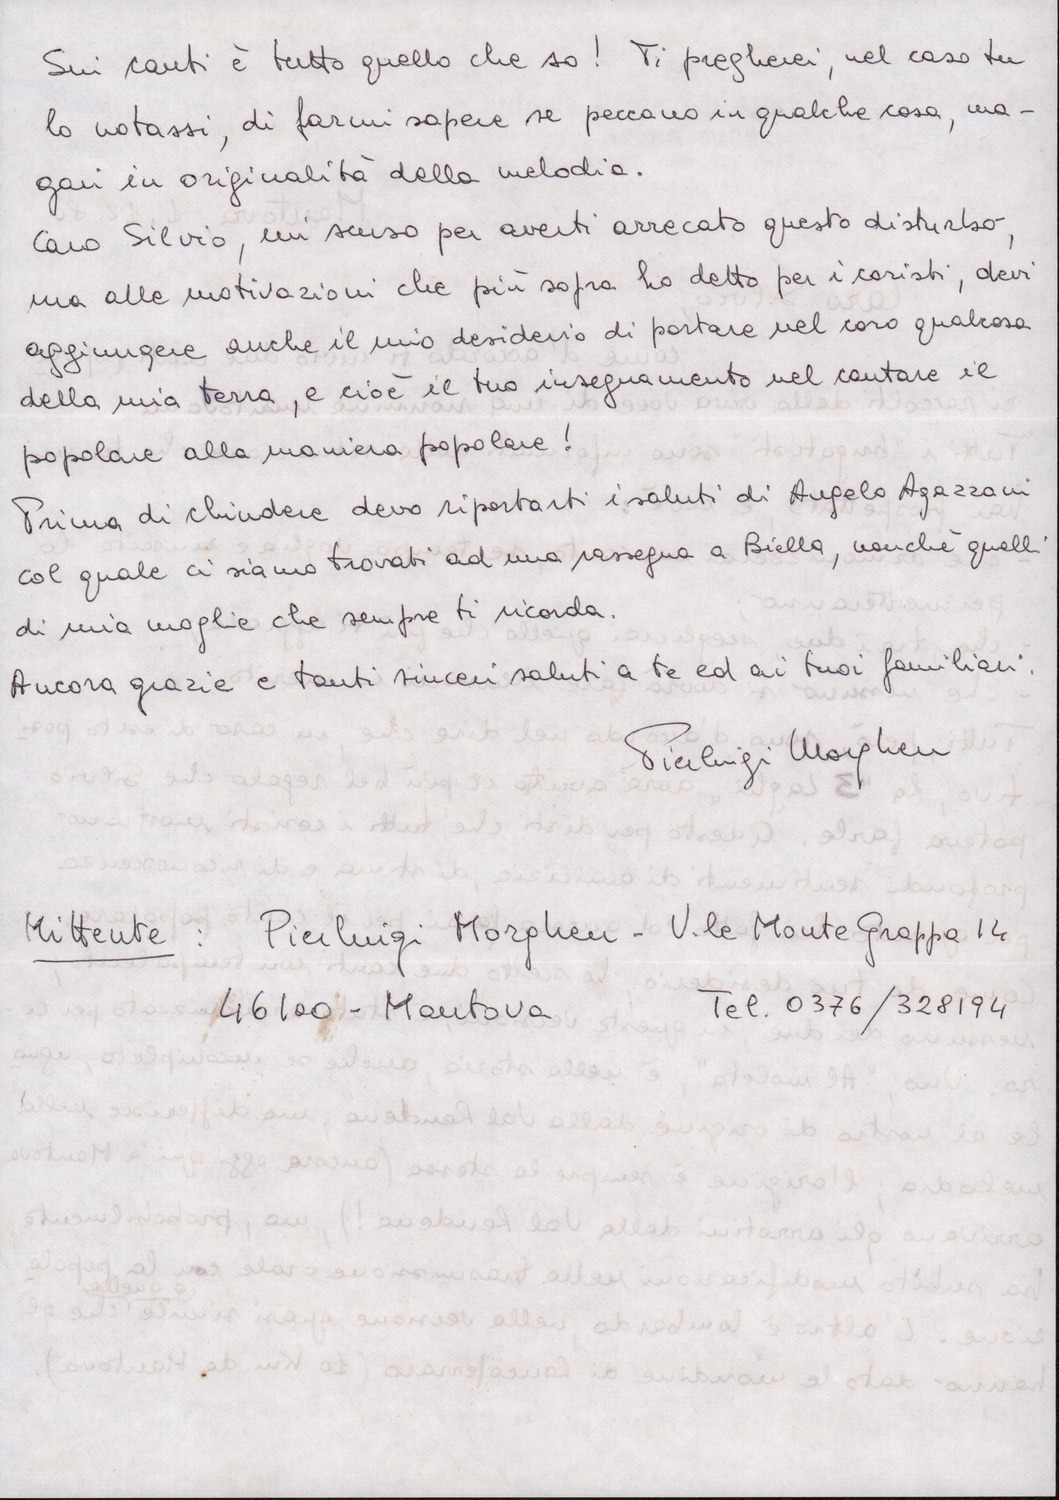 Sui canti è tutto quello che so! Ti pregherei, nel caso tu
lo notassi, di farmi sapere se peccano in qualche cosa, ma-
gari in originalità della melodia.
Caro Silvio, mi scuso per averti arrecato questo disturbo,
ma alle motivazioni che più sopra ho detto per i coristi, devi
aggiungere anche il mio desiderio di portare nel coro qualcosa
della mia terra, e cioè il tuo insegnamento nel cantare il
popolare alla maniera popolare!
Prima di chiudere devo riportarti i saluti di Angelo Agazzani
col quale ci siamo trovati ad una rassegna a Biella, nonchè quelli
di mia moglie che sempre ti ricorda.
Ancora grazie e tanti sinceri saluti a te ed ai tuoi familiari.
Pierluigi Morghen
Mittente : Pierluigi Morghen - V.le Monte Grappa 14
46100 - Mantova Tel. 0376/328194